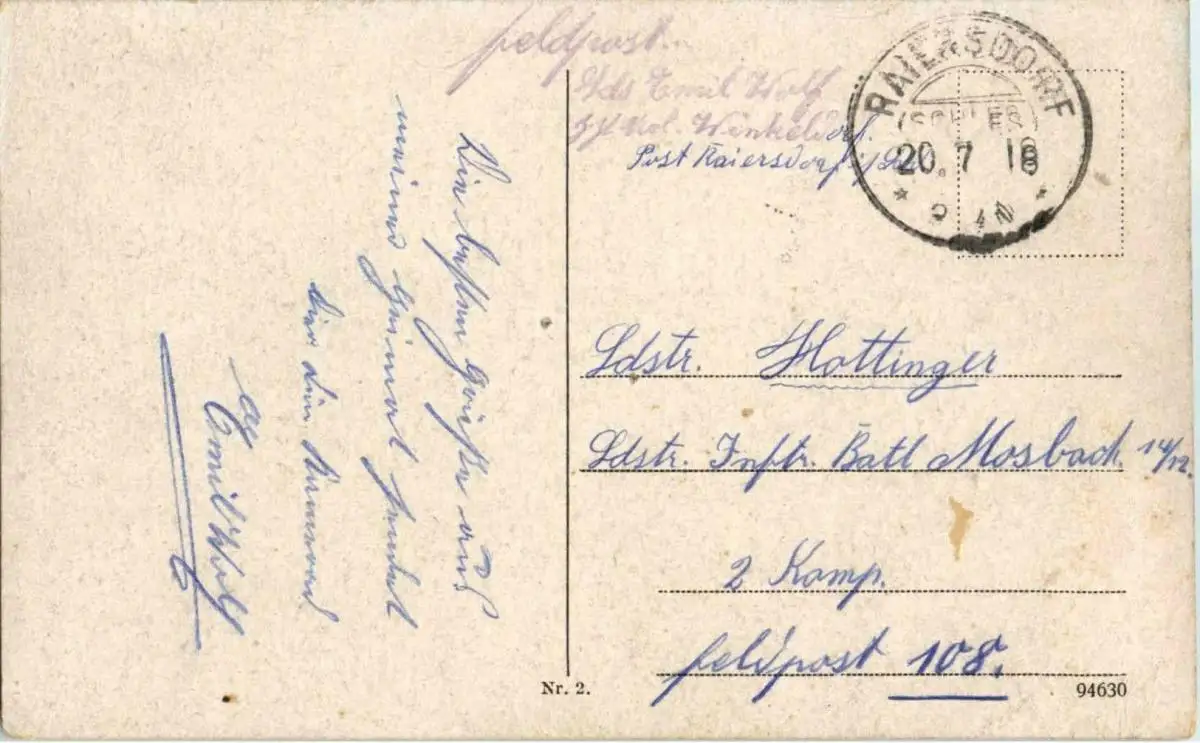 Feldpost.
Lds Emil Wolf
z. Zt. Kol. Winkeldorf.
Post Raiersdorf
RAIERSDORF
(SCHLES.)
20. 7 18
Ldstr. Hottinger
Ldstr. Inftr. Batl Mosbach 14/12.
2 Komp.
Feldpost 108.
Die besten Grüße aus
meiner Heimat sendet
dir dein Kamerad
Emil Wolf
Nr. 2.
94630